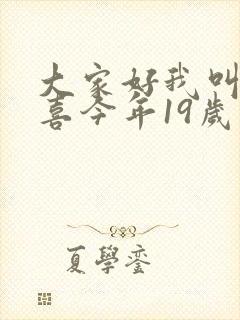 大家好我叫
喜今年19歲
夏學銮